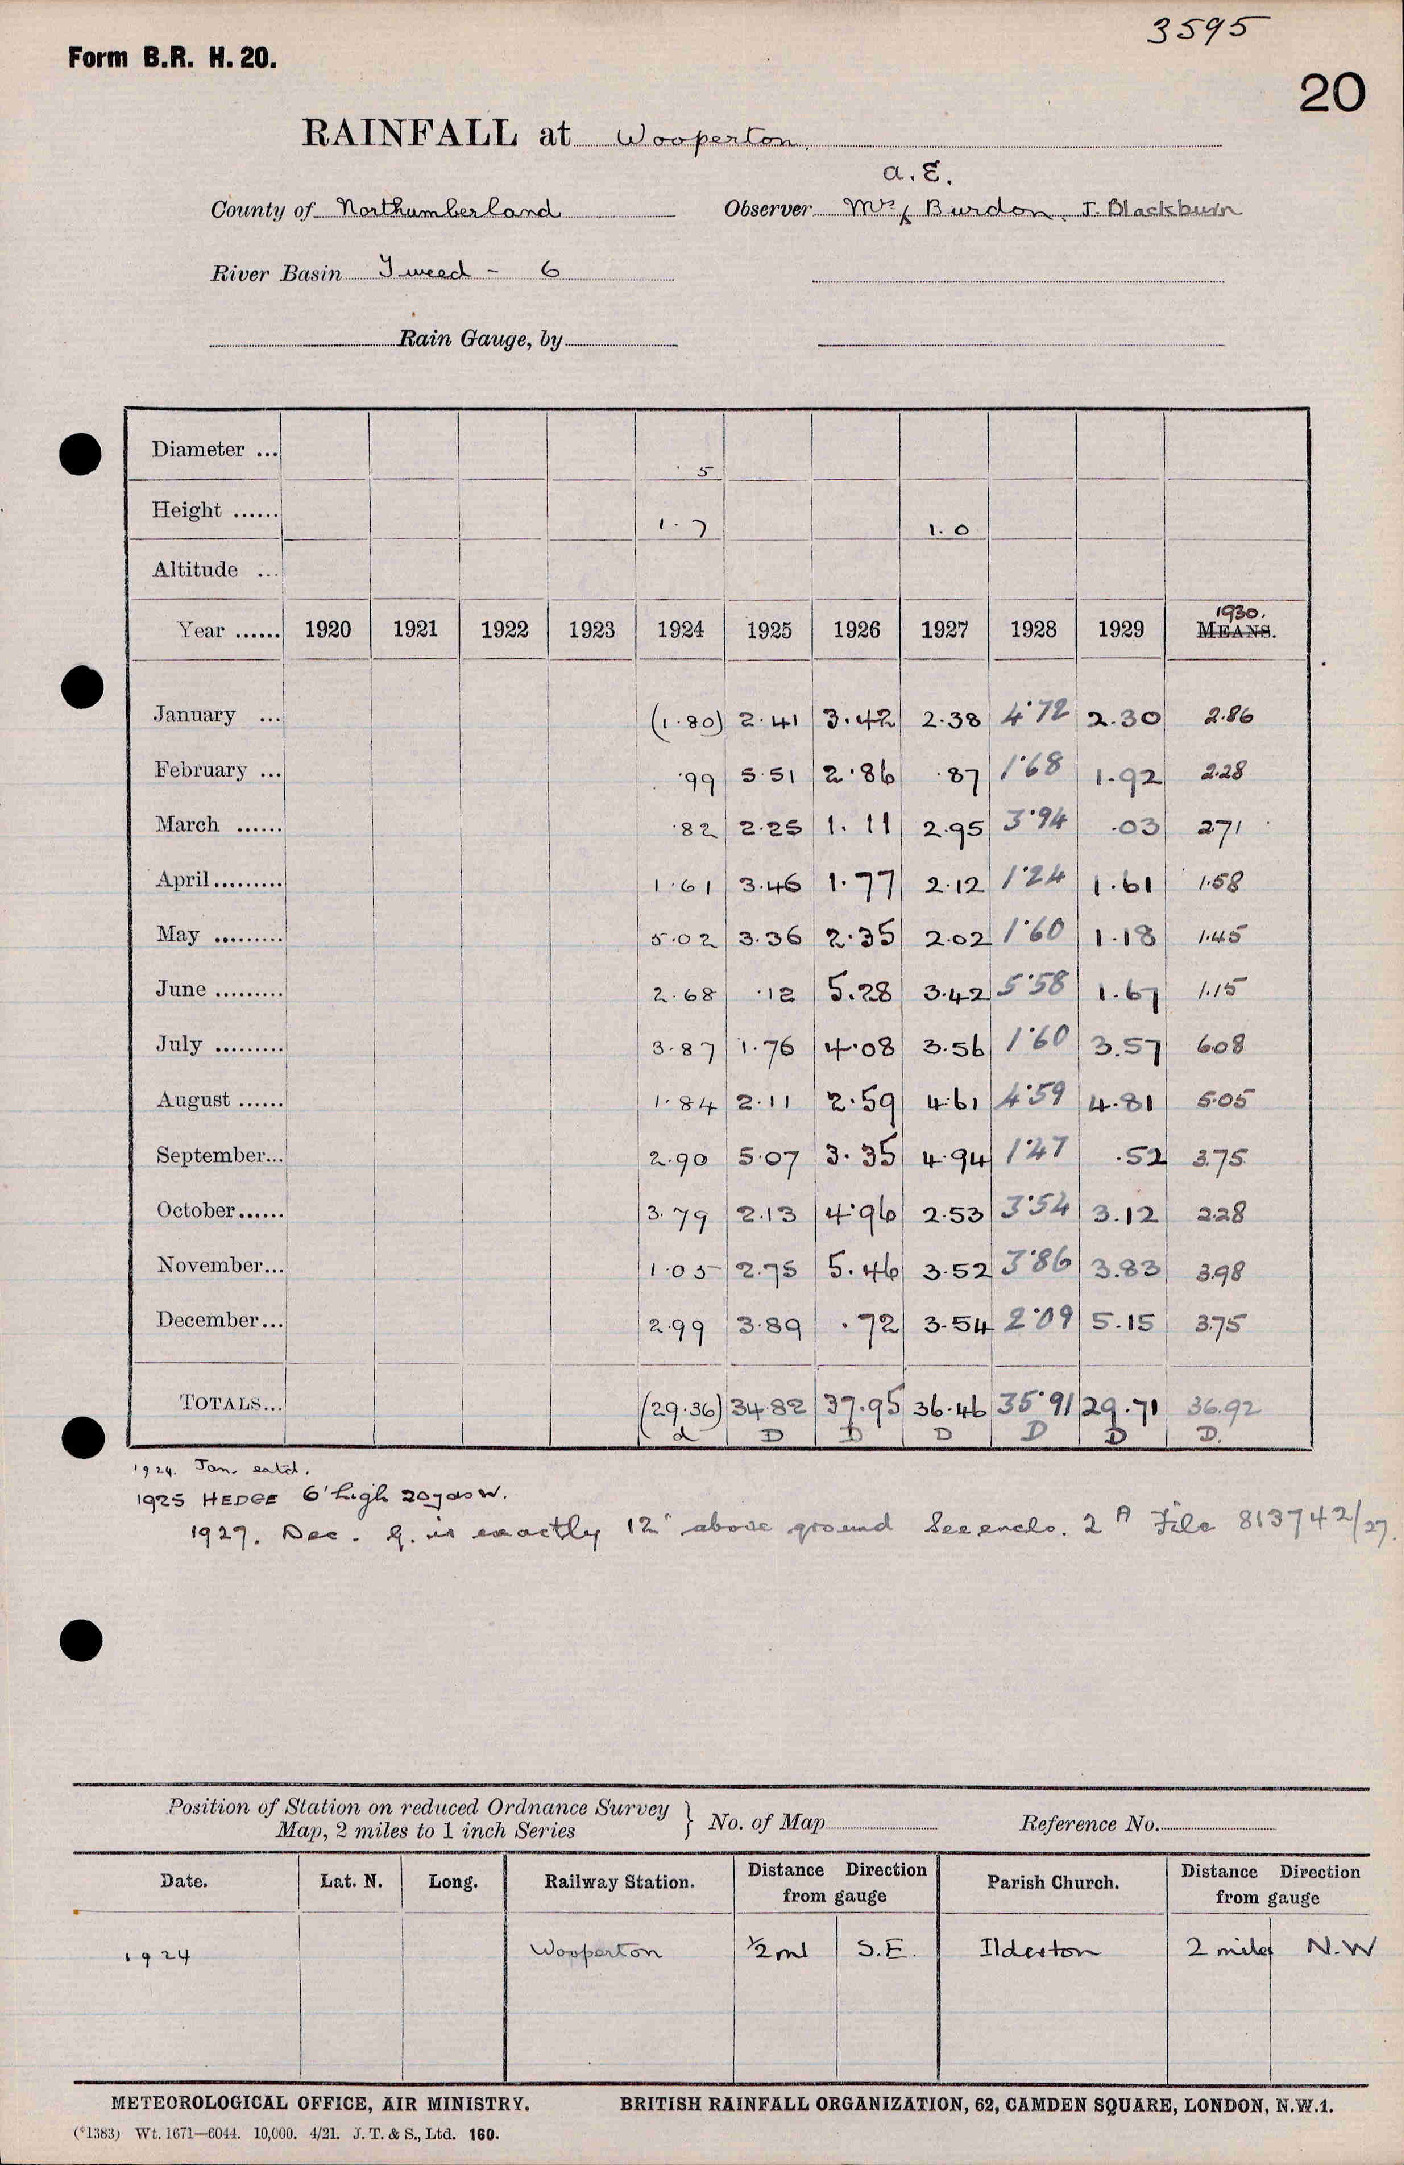 3595
Form B.R. H. 20.
20
RAINFALL at Wooperton.
a. E.
County of Northumberland Observer Mrs Burdon. J. Blackburn
River Basin Tweed - 6
Rain Gauge, by
Diameter ... 5
Height ...... 1.7 1.0
Altitude ...
1930.
Year ...... 1920 1921 1922 1923 1924 1925 1926 1927 1928 1929 MEANS.
January ... (1.80) 2.41 3.42 2.38 4.72 2.30 2.86
February ... .99 5.51 2.86 .87 1.68 1.92 2.28
March ...... .82 2.25 1.11 2.95 3.94 .03 271
April......... 1.61 3.46 1.77 2.12 1.24 1.61 1.58
May ......... 5.02 3.36 2.35 2.02 1.60 1.18 1.45
June ......... 2.68 .12 5.28 3.42 5.58 1.67 1.15
July ......... 3.87 1.76 4.08 3.56 1.60 3.57 608
August ...... 1.84 2.11 2.59 4.61 4.59 4.81 5.05
September... 2.90 5.07 3.35 4.94 1.47 .52 3.75
October...... 3.79 2.13 4.96 2.53 3.54 3.12 2.28
November... 1.05 2.75 5.46 3.52 3.86 3.83 3.98
December... 2.99 3.89 .72 3.54 2.09 5.15 3.75
TOTALS... (29.36) 34.82 37.95 36.46 35.91 29.71 36.92
d D D D D D D.
1924. Jan. estd.
1925 HEDGE 6' high 20yds W.
1927. Dec. G. is exactly 12" above ground See enclo. 2 A File 813742/27.
Position of Station on reduced Ordnance Survey
Map, 2 miles to 1 inch Series } No. of Map Reference No.
Date. Lat. N. Long. Railway Station. Distance Direction from gauge Parish Church. Distance Direction from gauge
1924 Wooperton 1/2 ml S.E. Ilderton 2 miles N.W
METEOROLOGICAL OFFICE, AIR MINISTRY. BRITISH RAINFALL ORGANIZATION, 62, CAMDEN SQUARE, LONDON, N.W.1.
(*1383) Wt. 1671—6044. 10,000. 4/21. J. T. & S., Ltd. 160.